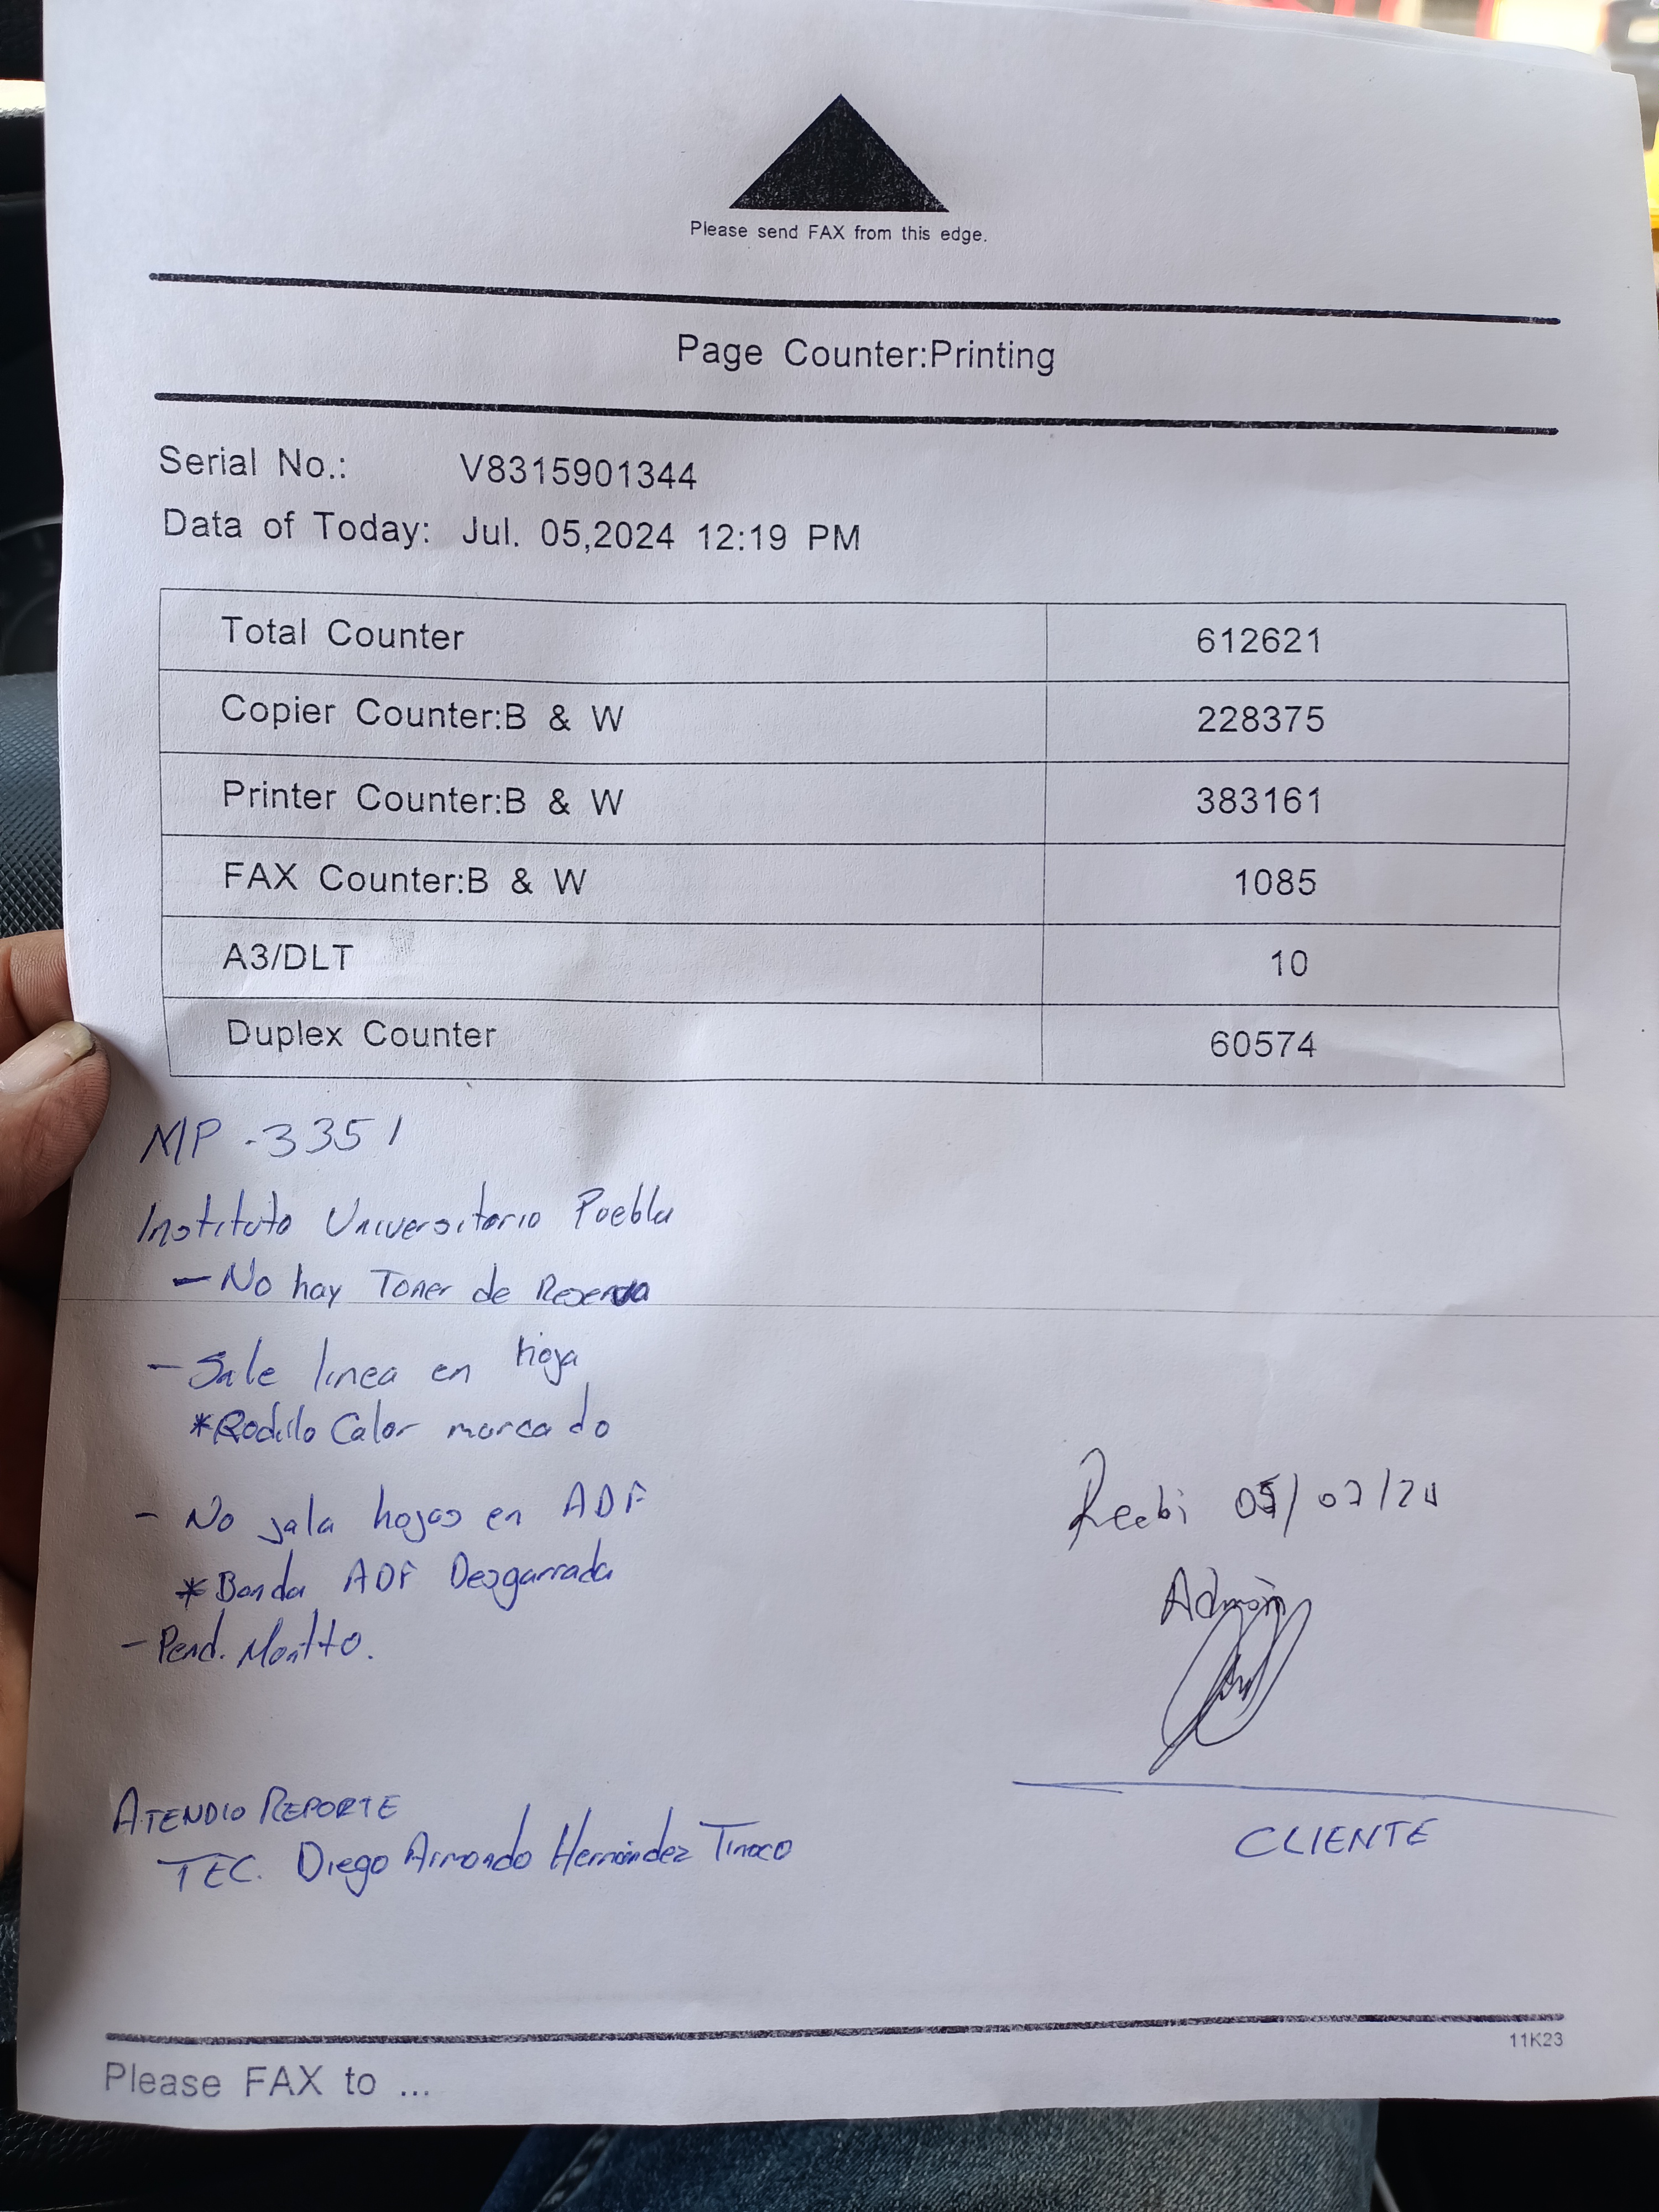 Please send FAX from this edge.
Page Counter:Printing
Serial No.: V8315901344
Data of Today: Jul. 05,2024 12:19 PM
Total Counter 612621
Copier Counter:B & W 228375
Printer Counter:B & W 383161
FAX Counter:B & W 1085
A3/DLT 10
Duplex Counter 60574
MP-3351
Instituto Universitario Puebla
- No hay Toner de Reserva
- Sale linea en hoja
*Rodillo Calor marcado
- No jala hojas en ADF
* Banda ADF Desgarrada
- Pend. Mantto.
Recibi 05/07/24
Admón
ATENDIO REPORTE
TEC. Diego Armando Hernández Tinoco
CLIENTE
11K23
Please FAX to ...